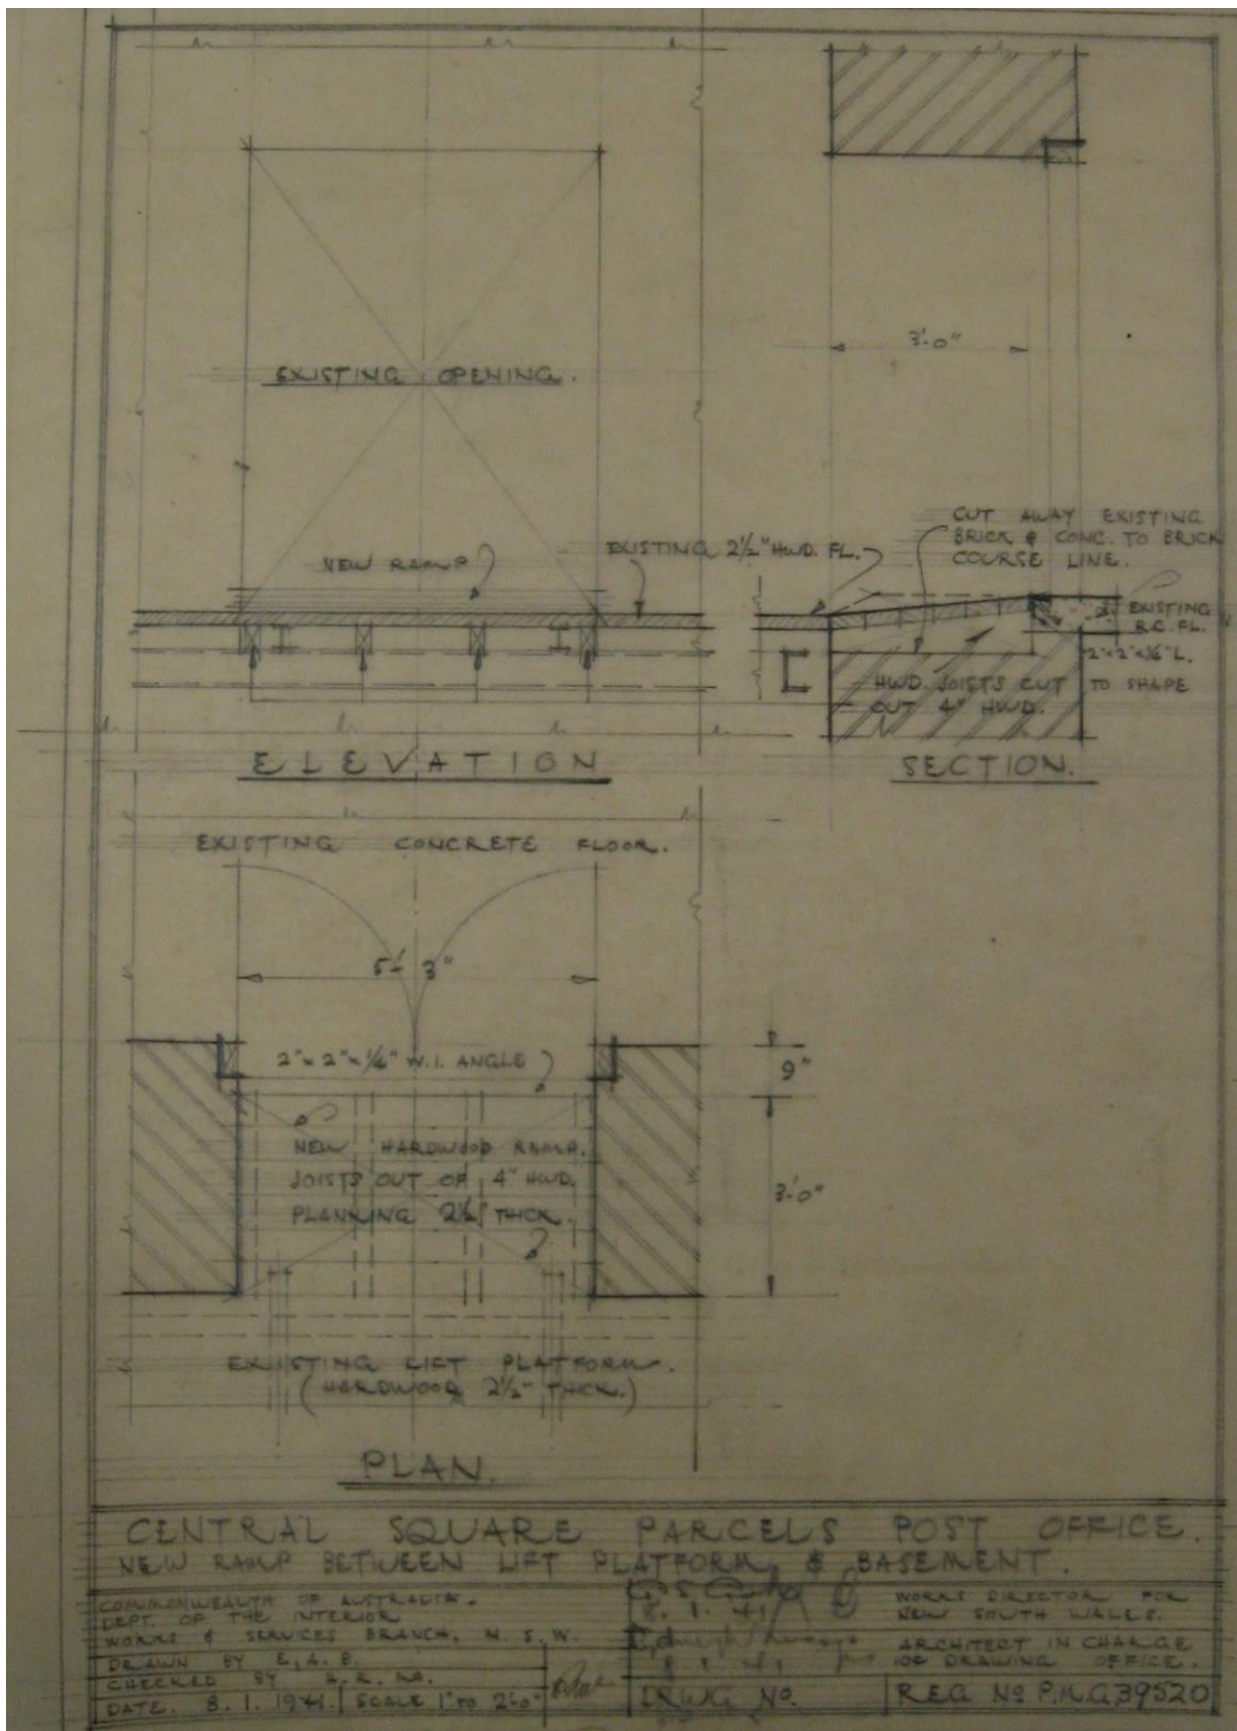 3'-0"
EXISTING OPENING.
CUT AWAY EXISTING
BRICK & CONC. TO BRICK
COURSE LINE.
NEW RAMP
EXISTING 2½" HWD. FL.
EXISTING
R.C. FL.
HWD. JOISTS CUT TO SHAPE
OUT 4" HWD.
ELEVATION
SECTION.
EXISTING CONCRETE FLOOR.
5'-3"
2"x2"x¼" W.I. ANGLE
9"
NEW HARDWOOD RAMP.
JOISTS OUT OF 4" HWD.
PLANKING 2½" THICK.
3'-0"
EXISTING LIFT PLATFORM.
(HARDWOOD 2½" THICK.)
PLAN.
CENTRAL SQUARE PARCELS POST OFFICE.
NEW RAMP BETWEEN LIFT PLATFORM & BASEMENT.
COMMONWEALTH OF AUSTRALIA.
DEPT. OF THE INTERIOR
WORKS & SERVICES BRANCH, N.S.W.
DRAWN BY E.A.B.
CHECKED BY
DATE. 8.1.1941. SCALE 1" TO 2'-0"
8.1.41
WORKS DIRECTOR FOR
NEW SOUTH WALES.
8.1.41
ARCHITECT IN CHARGE
OF DRAWING OFFICE.
DRWG No.
REG No P.M.G.39520